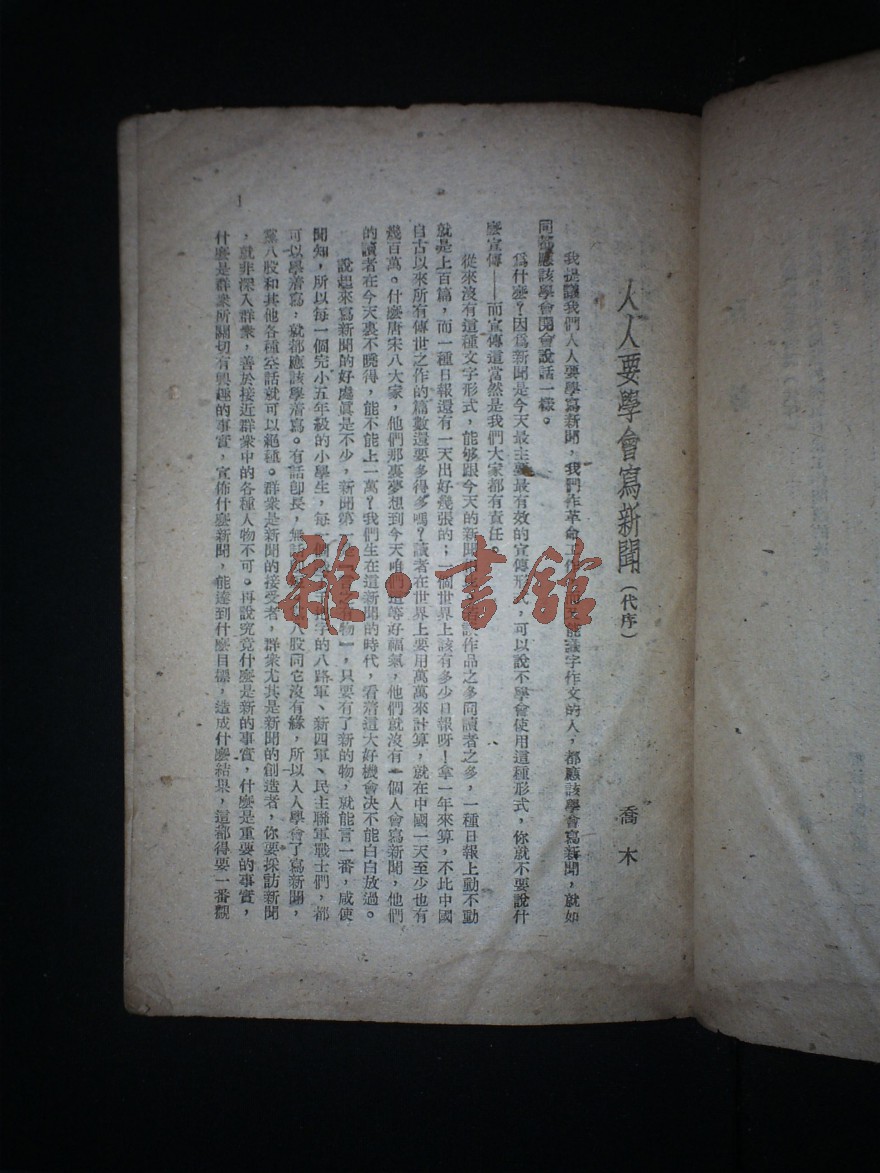 人人要學會寫新聞(代序)
喬木
我提議我們人人要學寫新聞,我們作革命工作能識字作文的人,都應該學會寫新聞,就如
同都應該學會開會說話一樣。
爲什麼?因爲新聞是今天最主要最有效的宣傳形式,可以說不學會使用這種形式,你就不要說什
麼宣傳——而宣傳這當然是我們大家都有責任。
從來沒有這種文字形式,能够跟今天的新聞作品之多同讀者之多,一種日報上動不動
就是上百篇,而一種日報還有一天出好幾張的;一個世界上該有多少日報呀!拿一年來算,不比中國
自古以來所有傳世之作的篇數還要多得多嗎?讀者在世界上要用萬萬來計算,就在中國一天至少也有
幾百萬。什麼唐宋八大家,他們那裏夢想到今天咱們這等好福氣,他們就沒有一個人會寫新聞,他們
的讀者在今天裏不曉得,能不能上一萬?我們生在這新聞的時代,看齊這大好機會决不能白白放過。
說起來寫新聞的好處眞是不少,新聞第一言之有物,只要有了新的物,就能言一番,咸使
聞知,所以每一個完小五年級的小學生,每一個字的八路軍、新四軍、民主聯軍戰士們,都
可以學着寫,就都應該學着寫。有話卽長,無話八股同它沒有緣,所以人人學會了寫新聞,
黨八股和其他各種空話就可以絕種。群衆是新聞的接受者,群衆尤其是新聞的創造者,你要採訪新聞
,就非深入群衆,善於接近群衆中的各種人物不可。再說究竟什麼是新的事實,什麼是重要的事實,
什麼是群衆所關切有興趣的事實,宣佈什麼新聞,能達到什麼目標,造成什麼結果,這都得要一番觀
1
雜·書舘